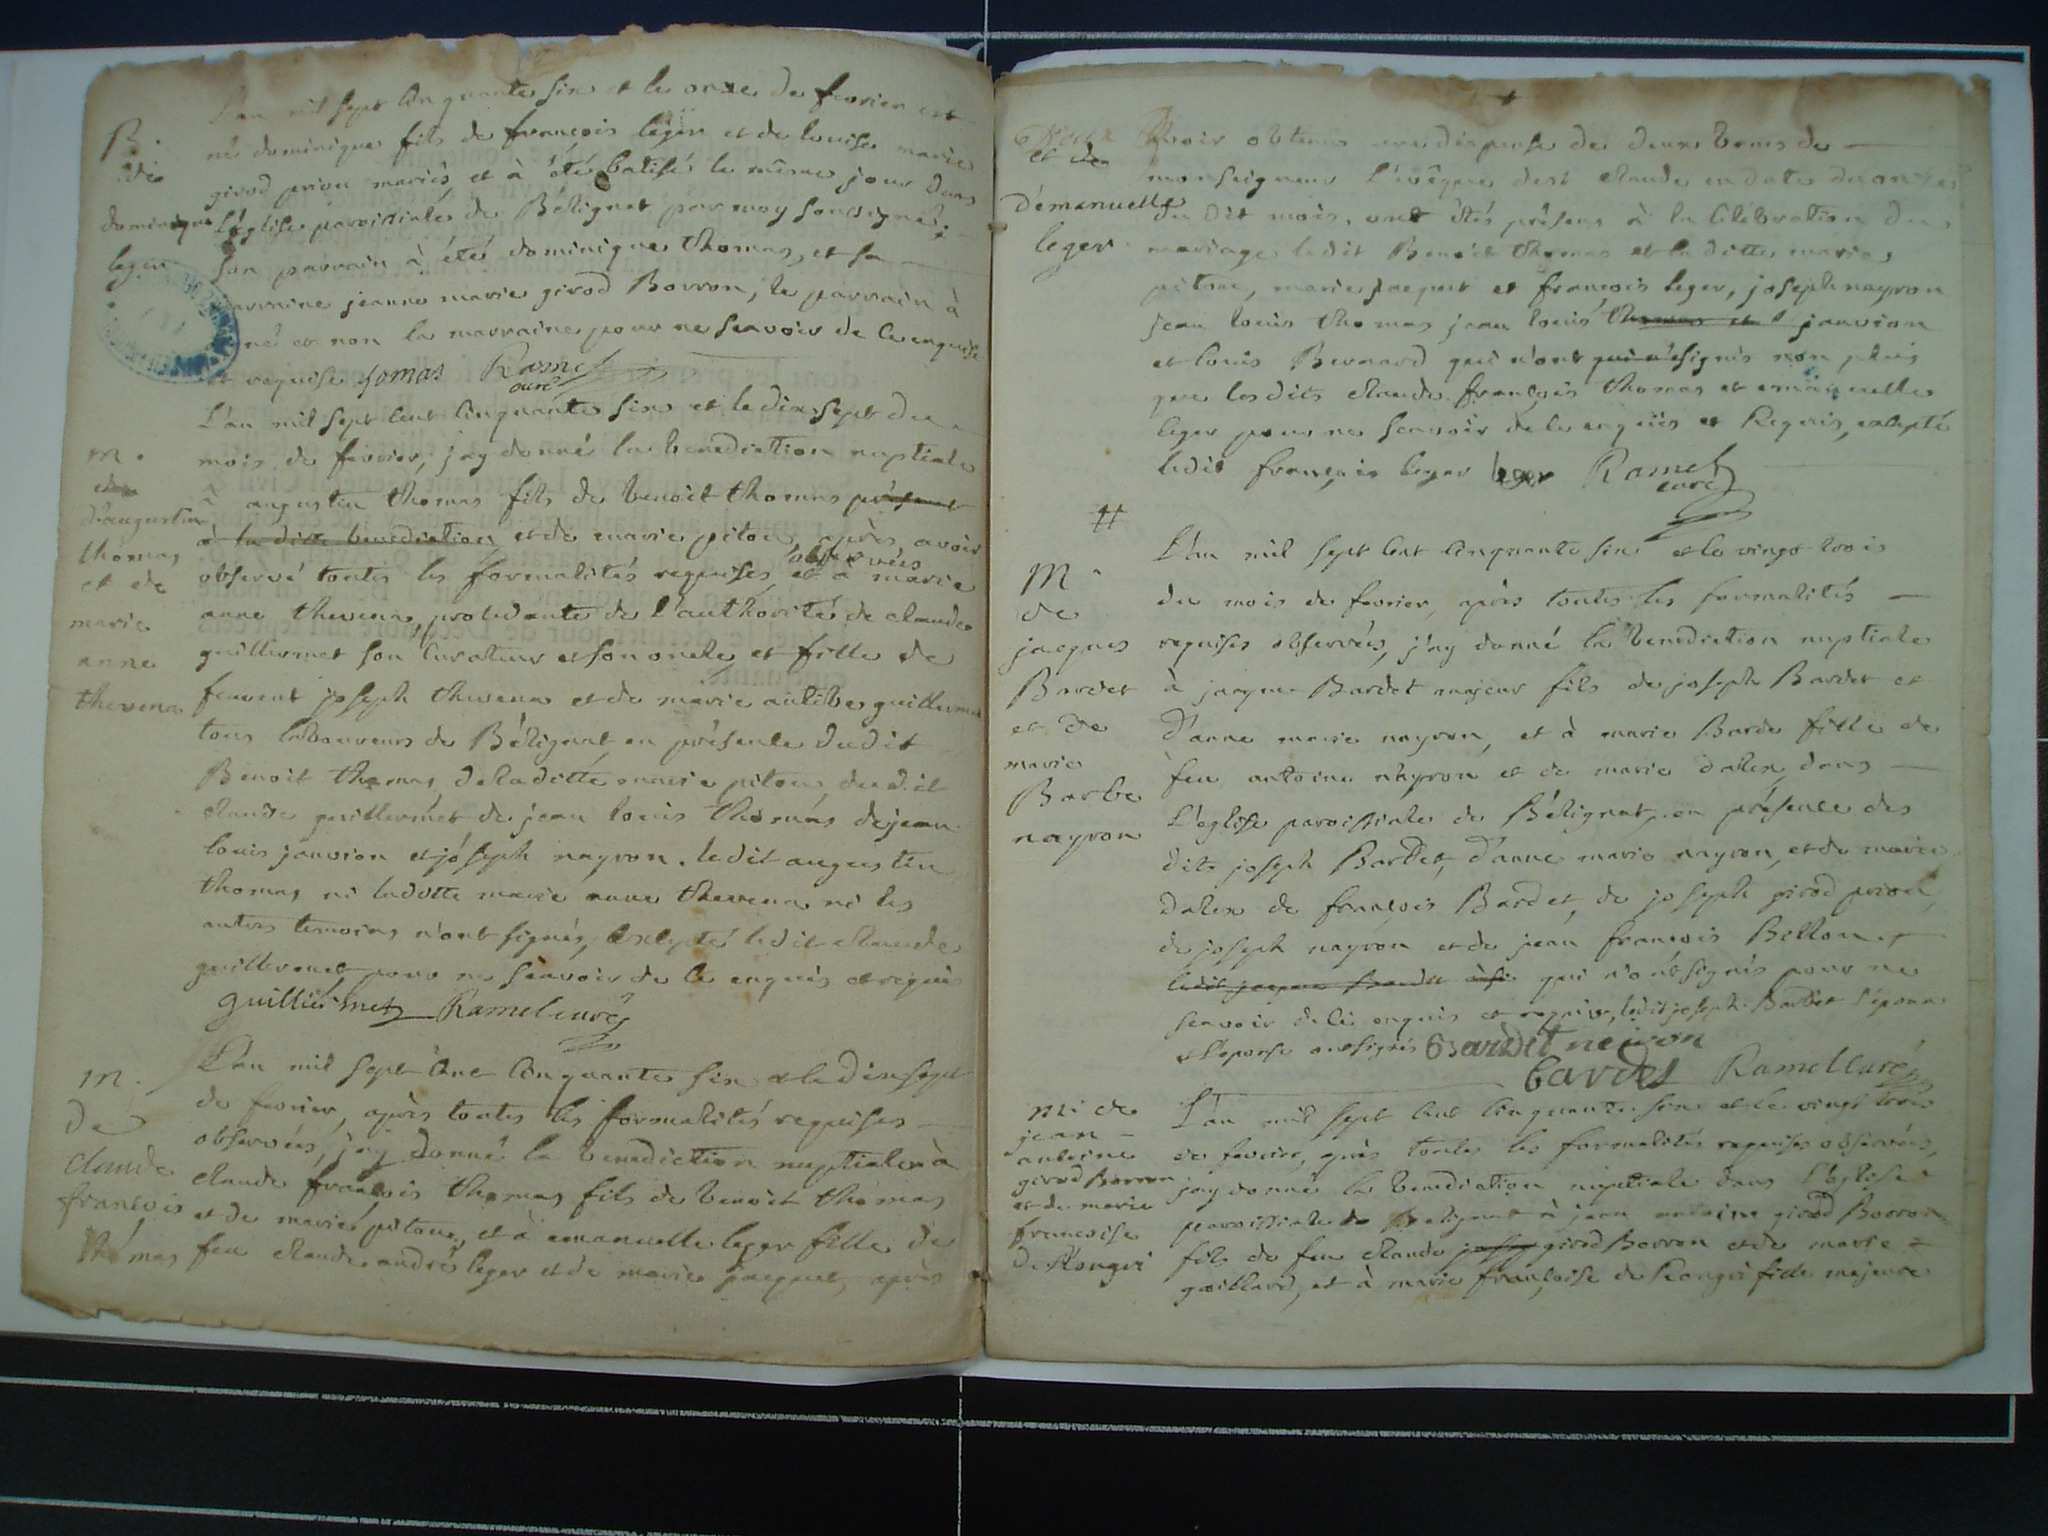 L'an mil sept cinquante six et le onze de fevrier est
B.
de
dominique
leger
né dominique fils de françois leger et de louise marie
girod priou mariés, et à été batisé le même jour dans
l'église paroissiale de Bélignat par moy soussigné,
son parrain à été dominique thomas, et sa
marraine jeanne marie girod Borron, le parrain à
né et non la marraine pour ne scavoir de ce enquise
et requise tomas Ramel
curé
m.
d'augustin
thomas
et de
marie
anne
thevena
L'an mil sept cent cinquante six et le dix sept du
mois de fevrier, j'ay donné la benediction nuptiale
à augustin thomas fils de benoit thomas présent
à la ditte benediction et de marie pitou, après avoir
observé toutes les formalités requises observées et à marie
anne thevena, procedante de l'authorité de claude
guillermet son curateur et son oncle et fille de
feu joseph thevena et de marie guillermet
tous laboureurs de Bélignat en présence dudit
Benoit thomas, de laditte marie pitou, dudit
claude guillermet de jean louis thomas de jean
louis janvion et joseph nayron. ledit augustin
thomas, ni laditte marie anne thevena ni les
autres temoins n'ont signés, excepté ledit claude
guillermet pour ne scavoir de ce enquis et requis
guilliermet Ramel curé
m.
de
claude
françois
thomas
L'an mil sept cent cinquante six et le dix sept
de fevrier, après toutes les formalités requises
observées, j'ay donné la benediction nuptiale à
claude françois thomas fils de benoit thomas
et de marie pitou, et à emanuelle leger fille de
feu claude andré leger et de marie jacquet, après
et de
D'emanuelle
leger
avoir obtenu une dispense de deux bans de
monseigneur L'évêque de st claude en date du onze
du dit mois, ont étés présens à la célébration du
mariage ledit Benoit thomas et la ditte marie
pitou, marie jacquet et françois leger, joseph nayron
jean louis thomas jean louis thomas et janvion
et louis Bernard qui n'ont signés non plus
que lesdits claude françois thomas et emanuelle
leger pour ne scavoir de ce enquis et Requis, excepté
ledit françois leger leger Ramel
curé
#
m.
de
jacques
Bardet
et de
marie
Barbe
nayron
L'an mil sept cent cinquante six et le vingt trois
du mois de fevrier, après toutes les formalités
requises observées, j'ay donné la benediction nuptiale
à jacque Bardet majeur fils de joseph Bardet et
d'anne marie nayron, et à marie Barbe fille de
feu antoine nayron et de marie dalex, dans
L'eglise paroissiale de Bélignat, en présence des
dits joseph Bardet, d'anne marie nayron, et de marie
dalex de françois Bardet, de joseph girod priou,
de joseph nayron et de jean françois Bellon
ledit jacque Bardet qui n'ont signés pour ne
scavoir de ce enquis et requis, ledit joseph Bardet l'epoux
et l'epouse ont signés Bardet neiron
bardet Ramel curé
m. de
jean
antoine
girod Borron
et de marie
françoise
de Rongvi
L'an mil sept cent cinquante six et le vingt trois
de fevrier, après toutes les formalités requises observées,
j'ay donné la benediction nuptiale dans L'eglise
paroissiale de Bélignat à jean antoine girod Borron
fils de feu claude girod Borron et de marie
gaillard, et à marie françoise de Rongvi fille majeure